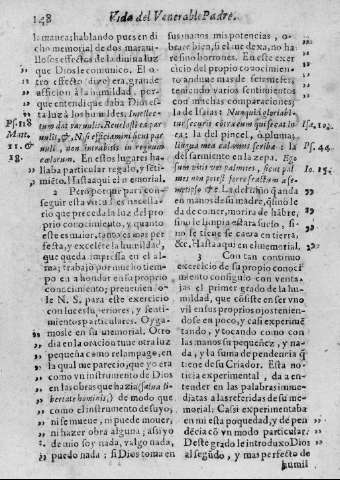 148 Vida del Venerable Padre.
lemanca; hablando pues en di
cho memorial de dos marauı
llosos effectos de la diuina luz
que Dios le comunico. El o
tro effecto (dize) era, grande
afficion à la humildad, por-
que entendi que daba Dios es-
ta luz à los humildes.
Psf.118
Mat.
11. &
18.
cælorum. En estos lugares ha
llaba particular regalo, y esti-
mielo. Hasta aqui el memorial.
2 Pero porque pari con-
seguir esta virtud es necessa-
rio que preceda la luz del pro
prio conocimiento, y quanto
este es maior, tanto es mas per
fecta, y excelẽte la humildad,
que queda impressa en el al-
ma; trabajo por mucho tiem-
po en ahondar en su proprio
conocimiento; preuenien do-
le N. S. para este exercicio
con luces superiores, y senti-
mientos particulares. Oyga-
moslo en su memorial. Otro
dia en la oracion tuue otra luz
pequeña como relampago, en
la qual me parecio, que yo era
como vn instrumento de Dios
en las obras que hazia (salua li-
bertate hominis,) de modo que
como el instrumento de suyo,
ni se mueue, ni puede mouer,
ni hazer obra alguna; assi yo
de mio soy nada, valgo nada,
puedo nada; si Dios toma en
sus manos mis potencias, o-
brarè bien, si el me dexa, no ha-
rè sino borrones. En este exer
cicio del propio conocimien-
to anduue mas de seteneses,
teniendo varios sentimientos
con muchas comparaciones;
la de Isaias: Nunquid gloriabi-
tur securis contra eum qui secat in
ea; la del pincel, o pluma,
lingua mea calamus scribæ: la
del sarmiento en la zepa. Ego
sum vitis vos palmites, sicut pal
mes non potest ferre fructum a se-
metipso &c. La del niño quãnda
en manos de su madre, q̃ si no le
da de comer, morira de hãbre,
si no le limpia estara suzio, si
no se tiene se caera en tierra,
&c. Hasta aqui en el memorial.
Isa.10.
Ps.44.
Io.15.
3 Con tan continuo
exercicio de su propio conoci
miento consiguio con venta-
jas el primer grado de la hu-
mildad, que cõsiste en ser vno
vil en sus propios ojos teniendo-
se en poco, y casi experimẽ
tando, y tocando como con
las manos su pequeñez, y na-
da, y la suma de pendencia q̃
tiene de su Criador. Esta no-
ticia experimental, da a en-
tender en las palabras inme-
diatas a las referidas de su me-
morial: Casi experimentaba
en mi esta poquedad, y de pen
dẽcia cõ vn modo particular.
Deste grado le introduxo Dios
al segũdo, y mas perfecto de
humil